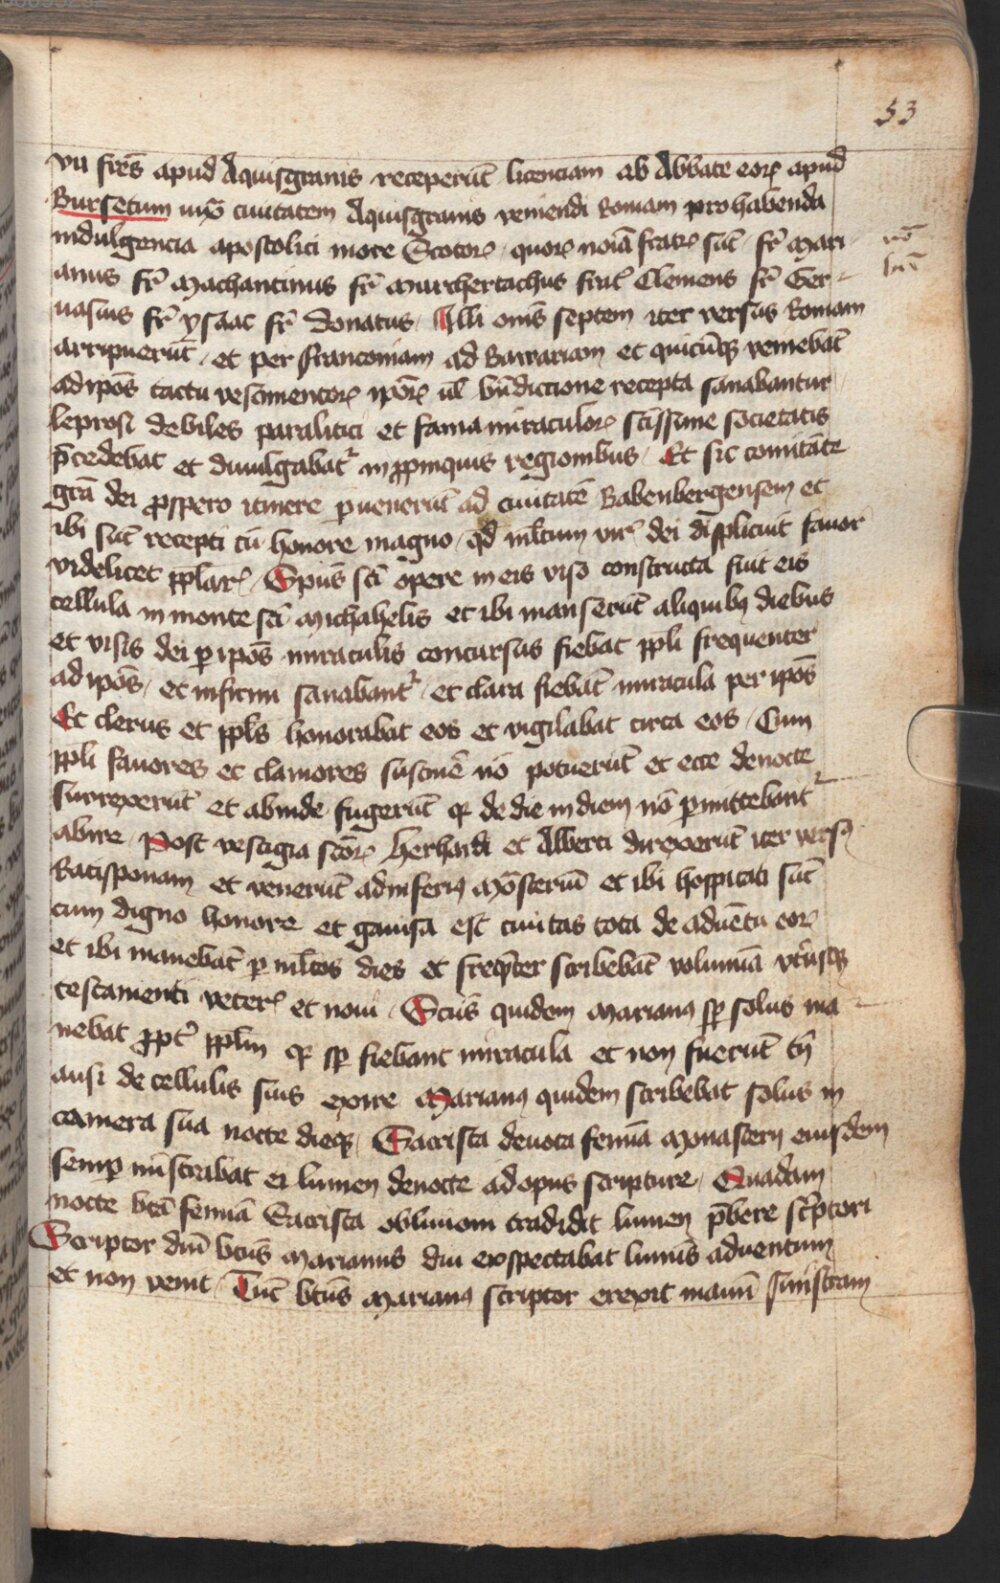 53
vii fr̄es apud Aquisgranis receperūt licenciam ab Abbate eoꝝ apud
Bursetum iuxͣ ciuitatem Aquisgranis veniendi Romam pro habenda
indulgencia apostolici more Scotoꝝ quoꝝ noīa fratꝝ sūt fr̄ Mari
anus fr̄ Machantinus fr̄ Murchertachus frat̄ Clemens fr̄ Ger-
uasius fr̄ ysaac fr̄ Donatus Illi om̄s septem iter versus Romam
arripuerūt et per franconiam ad Bauariam et quicūqꝫ veniebāt
ad ip̄os tactu vestimentoꝝ ip̄oꝝ ul̄ bn̄dictione recepta sanabantur
leprosi debiles paralitici et fama miraculoꝝ sc̄issime societatis
p̄cedebat et diuulgabat᷑ in ꝓpinquis regionibus Et sic comitāte
gr̄a dei ꝓspero itinere ꝑuenerūt ad ciuitatē Babenbergensem et
ibi sūt recepti cū honore magno qd̄ ml̄tum vir̄ dei displicuit fauor
videlicet pplar̄ Sp̄us sc̄i opere in eis viso constructa fuit eis
cellula in monte sc̄i Michahelis et ibi manserūt aliquibꝫ diebus
et visis dei ꝑ ip̄os miraculis concursus fiebat pp̄li frequenter
ad ip̄os et infirmi sanabant᷑ et clara fiebāt miracula per ip̄os
Et clerus et pp̄ls honorabat eos et vigilabat circa eos Cum
pp̄li fauores et clamores sustinē nō potuerūt et ecce de nocte
surrexerūt et abinde fugerūt qꝛ de die in diem nō ꝑmittebant᷑
abire Post vestigia sc̄oꝝ Herhardi et Alberti direxerūt iter versꝰ
Ratisponam et venerūt ad inferiꝰ mōsteriū et ibi hospitati sūt
cum digno honore et gauisa est ciuitas tota de aduētu eoꝝ
et ibi manebāt ꝑ ml̄tos dies et freqn̄ter scribebāt volumīa vtriusqꝫ
testamenti veter̄ et noui Sc̄us quidem Marianꝰ sꝑ solus ma
nebat ꝓpt̄ pp̄lm qꝛ sꝑ fiebant miracula et non fuerūt tn̄
ausi de cellulis suis exire Marianꝰ quidem scribebat solus in
camera sua nocte dieqꝫ Sacrista deuota femīa Monasterij eiusdem
semꝑ mīstrabat ei lumen de nocte ad opus scripture Quadam
nocte bt̄a femīa Sacrista obliuioni tradidit lumen p̄bere sc̄ptori
Scriptor dūi bt̄us Marianus diu exspectabat lumīs aduentum
et non venit Tūc bt̄us Marianꝰ scriptor erexit manū sinistram